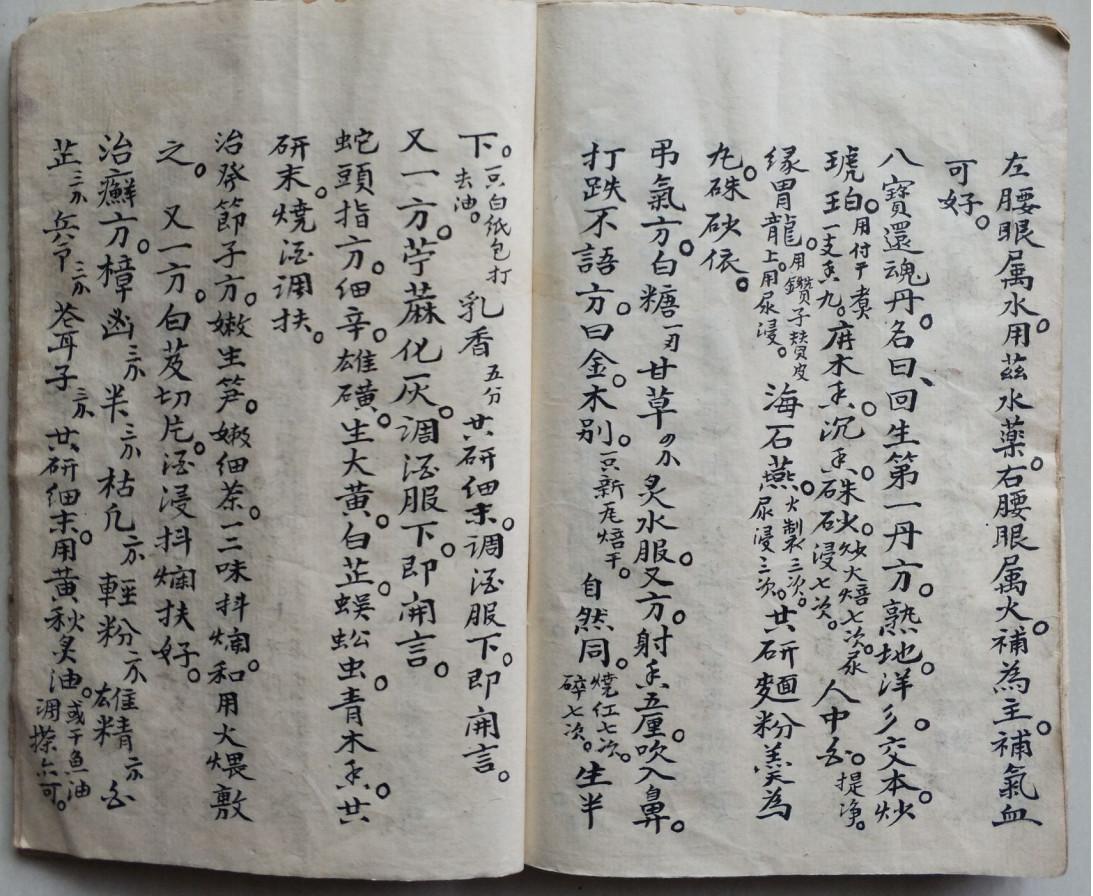 左腰眼属水。用茲水薬。右腰眼属火。補為主。補氣血
可好。
八寶還魂丹。名曰、回生第一丹方。熟地。洋彡。交本炒
琥珀。用付干煮一支香九。麻木香。沉香。硃砂。炒火焙七次。尿浸七次。人中白。提净。
缘胃龍。用鑽子鑽皮上用尿浸。海石燕。火製三次。尿浸三次。共研麵粉羔為
丸。硃砂依。
吊氣方。白糖一刃甘草炙水服。又方。射香五厘吹入鼻。
打跌不語方。曰金。木别。一只新瓦焙干。自然同。燒红七次。碎七次。生半
下。一只白纸包打去油。乳香五分共研细末。调酒服下。即開言。
又一方。苧蔴化灰。调酒服下。即開言。
蛇頭指方。细辛。雄磺。生大黄。白芷。蜈蚣虫。青木香。共
研末。燒酒调扶。
治發節子方。嫩生笋。嫩细茶。二味抖爛。和用火煨敷
之。又一方。白芨切片。酒浸抖爛扶好。
治癬方。樟凼半枯凡軽粉雄精白
芷苍耳子共研细末。用黄秋炙油。或干魚油调搽亦可。